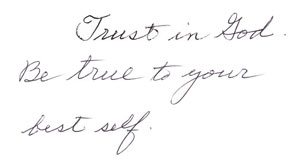 Trust in God.
Be true to your
best self.